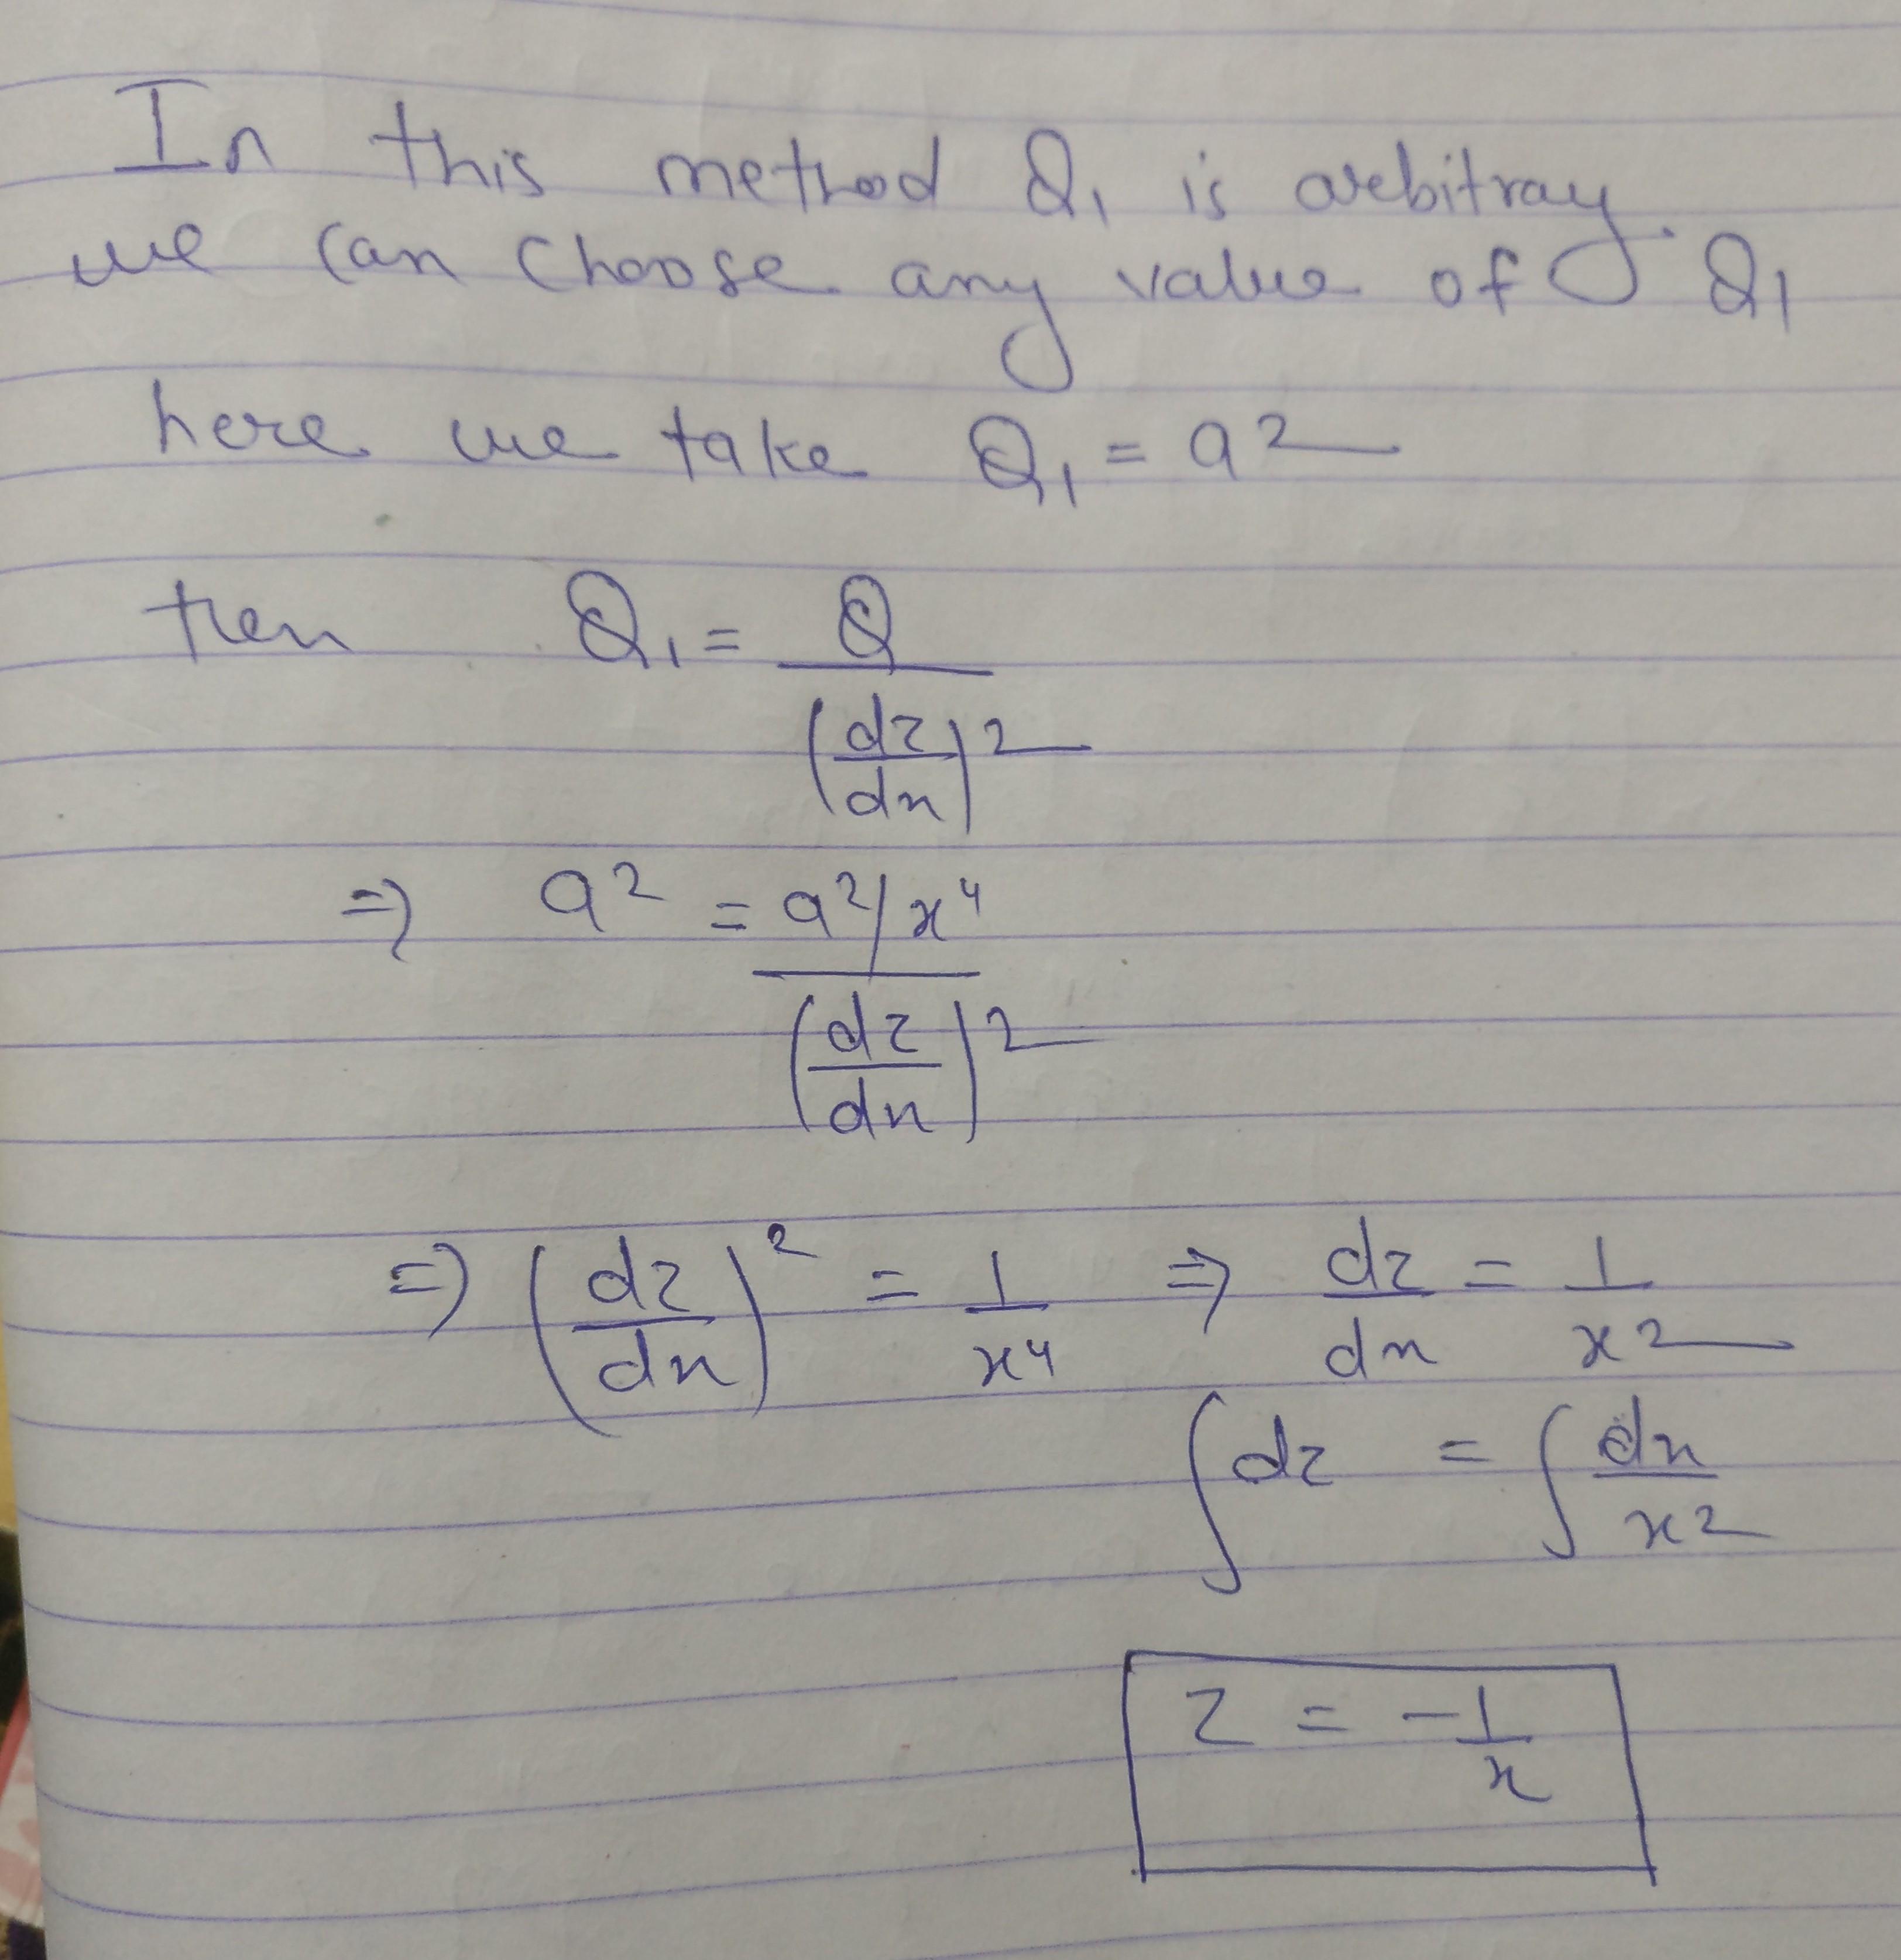 In this method Q₁ is arbitray.
we can choose any value of Q₁
here we take Q₁ = a²
then Q₁ = Q / (dz/dx)²
⇒ a² = a²/x⁴ / (dz/dx)²
⇒ (dz/dx)² = 1/x⁴ ⇒ dz/dx = 1/x²
∫dz = ∫dx/x²
z = -1/x